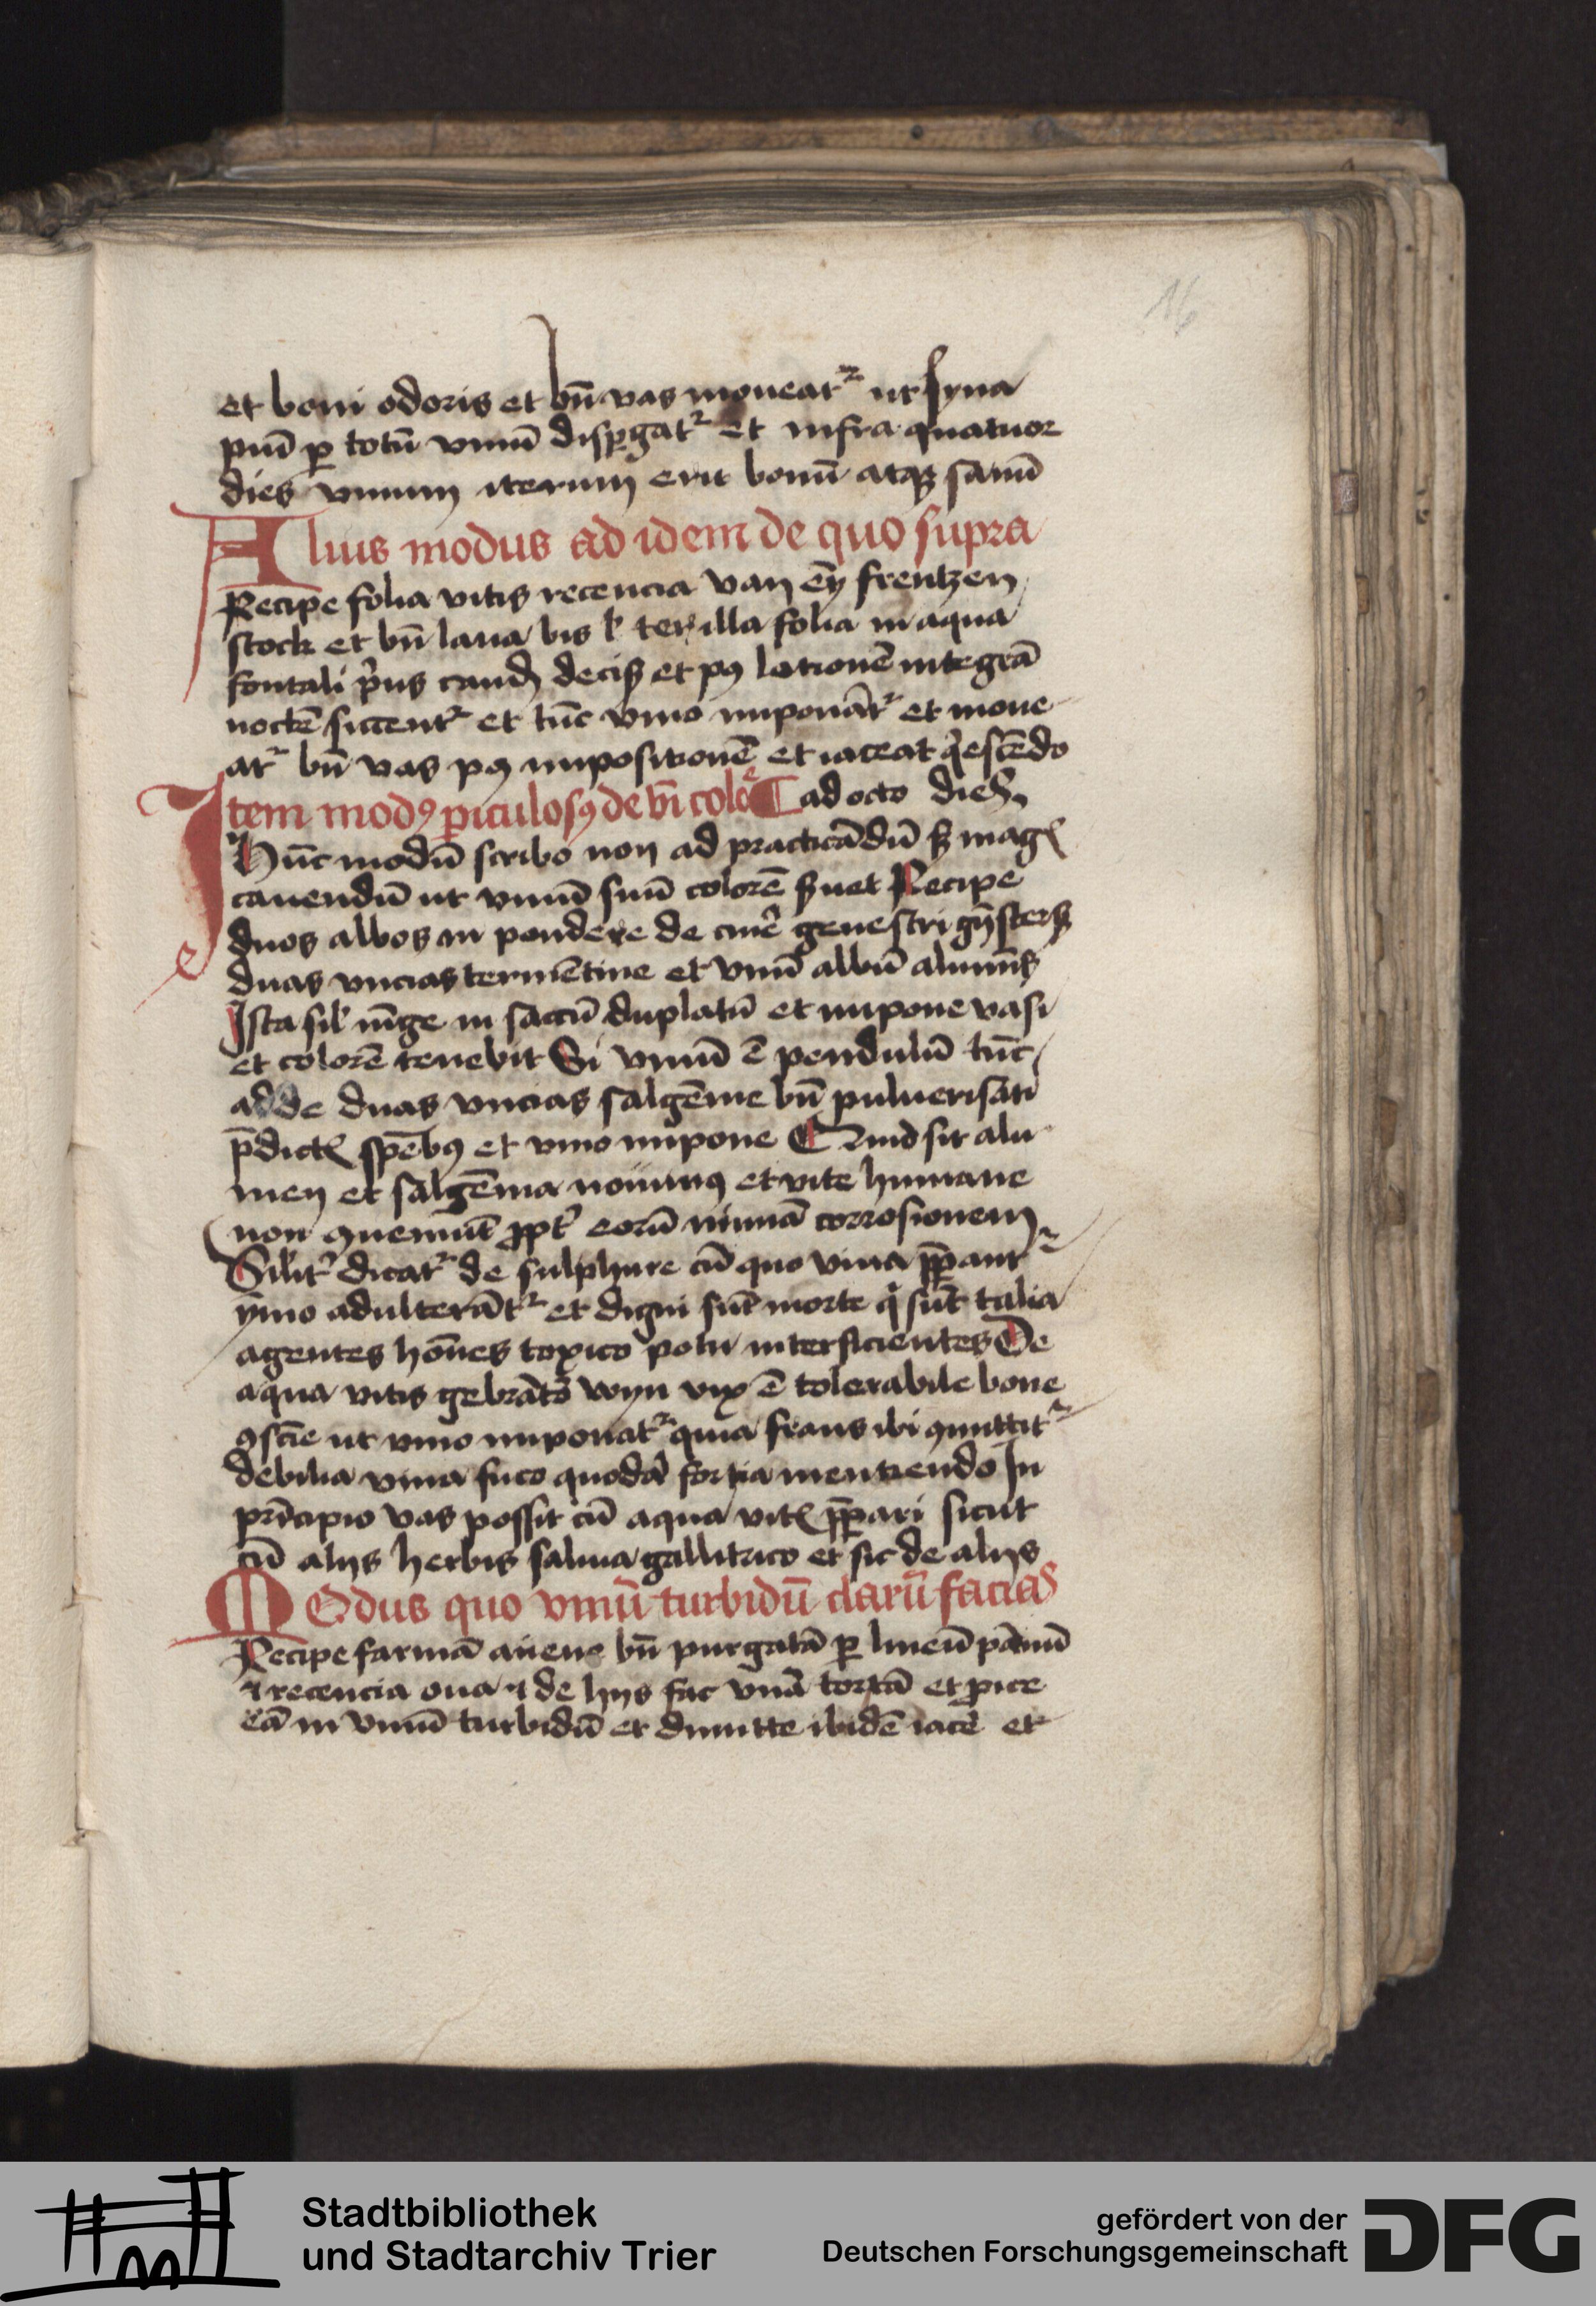 16
et boni odoris et bn̄ vas moueat᷑ ut syna
piū p̲ totū vinū disp̲gat᷑ et infra quatuor
dies vinum iterum erit bonū atqꝫ sanū
Alius modus ad idem de quo supra
Recipe folia vitis recencia van eȳ frentzen
stock et bn̄ laua bis ł ter illa folia in aqua
fontali p̓us caud decis et pꝰ lotionē integrā
noctē siccent᷑ et tūc vino imponāt᷑ et moue
at᷑ bn̄ vas pꝰ impositionē et iaceat q̓escēdo
Item modꝰ p̲iculosꝰ de vī colōe ad octo dies
Hūc modū scribo non ad practicādū sꝫ mag
cauendū ut vinū suū colorē s̓uet Recipe
duos albos in pondere de cinē genestri gīsters
duas vncias termētine et vnū albū aluminis
Ista sil̓ iūge in saccū duplatū et impone vasi
et colorē tenebit Si vinū ē pendulū tūc
adde duas vncias salgēme bn̄ puluerisati
p̄dict spēbꝰ et vino impone Quid sit alu
men et salgēma nouimꝰ et vite humane
non ꝯueniūt ꝓpt̓ eorū nimiā corrosionem
Silit᷑ dicat᷑ de sulphure cū quo vina p̲p̄ant᷑
ymo adulterāt᷑ et digni sūt morte q̓ sūt talia
agentes hōnes toxico potu interficientes De
aqua vitis gebrātē wyn vix ē tolerabile bone
ꝯscīe ut vino imponat᷑ quia fraus ibi ꝯmittit᷑
debilia vina fuco quodā fortia mentiendo In
prīcipio vas possit cū aqua vit p̲p̄ari sicut
cū alijs herbis saluia gallitrico et sic de alijs
Modus quo vinū turbidū clarū facias
Recipe farinā auene bn̄ purgatā p̲ lineū pānū
⁊ recencia oua ⁊ de hijs fac vnā tortā et ꝓice
eā in vinū turbidū et dimitte ibidē iacē et
Stadtbibliothek
und Stadtarchiv Trier
gefördert von der
Deutschen Forschungsgemeinschaft
DFG